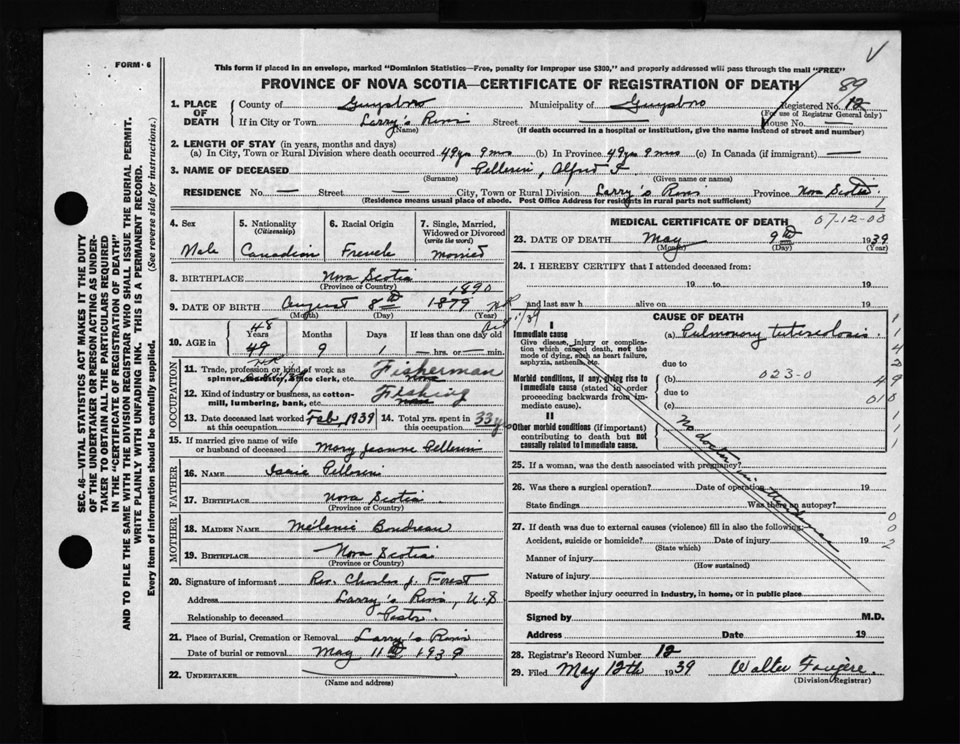 FORM - 6
This form if placed in an envelope, marked "Dominion Statistics—Free, penalty for improper use $300," and properly addressed will pass through the mail "FREE"
PROVINCE OF NOVA SCOTIA—CERTIFICATE OF REGISTRATION OF DEATH
89
1. PLACE OF DEATH
County of Guysboro Municipality of Guysboro Registered No. 12
(For use of Registrar General only)
If in City or Town Larry's River Street — House No. —
(Name) (If death occurred in a hospital or institution, give the name instead of street and number)
2. LENGTH OF STAY (in years, months and days)
(a) In City, Town or Rural Division where death occurred 49 yrs 9 mos (b) In Province 49 yrs 9 mos (c) In Canada (if immigrant) —
3. NAME OF DECEASED Pellerin, Alfred F.
(Surname) (Given name or names)
RESIDENCE No. — Street — City, Town or Rural Division Larry's River Province Nova Scotia
(Residence means usual place of abode. Post Office Address for residents in rural parts not sufficient)
4. Sex Male
5. Nationality (Citizenship) Canadian
6. Racial Origin French
7. Single, Married, Widowed or Divorced (write the word) married
8. BIRTHPLACE Nova Scotia
(Province or Country)
1890
9. DATE OF BIRTH August 8th 1879
(Month) (Day) (Year)
48
10. AGE in Years 49 Months 9 Days 1 If less than one day old — hrs. or — min.
OCCUPATION
11. Trade, profession or kind of work as spinner, sawyer, office clerk, etc. Fisherman
12. Kind of industry or business, as cotton-mill, lumbering, bank, etc. Fishing
13. Date deceased last worked at this occupation Feb. 1939 14. Total yrs. spent in this occupation 33 y
15. If married give name of wife or husband of deceased Mary Jeanne Pellerin
FATHER
16. NAME Isaie Pellerin
17. BIRTHPLACE Nova Scotia
(Province or Country)
MOTHER
18. MAIDEN NAME Mélanie Boudreau
19. BIRTHPLACE Nova Scotia
(Province or Country)
20. Signature of informant Rev. Charles J. Forest
Address Larry's River, N.S
Relationship to deceased Pastor
21. Place of Burial, Cremation or Removal Larry's River
Date of burial or removal May 11th 1939
22. UNDERTAKER
(Name and address)
MEDICAL CERTIFICATE OF DEATH
07-12-00
23. DATE OF DEATH May 9th 1939
(Month) (Day) (Year)
24. I HEREBY CERTIFY that I attended deceased from:
19 to 19
and last saw h alive on 19
CAUSE OF DEATH
I
Immediate cause
Give disease, injury or complication which caused death, not the mode of dying, such as heart failure, asphyxia, asthenia, etc.
(a) Pulmonary tuberculosis
due to
Morbid conditions, if any, giving rise to immediate cause (stated in order proceeding backwards from immediate cause).
(b) 023-0
due to
(c)
II
Other morbid conditions (if important) contributing to death but not causally related to immediate cause.
No doctor in attendance
25. If a woman, was the death associated with pregnancy?
26. Was there a surgical operation? Date of operation 19
State findings Was there an autopsy?
27. If death was due to external causes (violence) fill in also the following:
Accident, suicide or homicide? Date of injury 19
(State which)
Manner of injury
(How sustained)
Nature of injury
Specify whether injury occurred in industry, in home, or in public place
Signed by M.D.
Address Date 19
28. Registrar's Record Number 12
29. Filed May 12th 1939 Walter Faugere
(Division Registrar)
SEC. 46—VITAL STATISTICS ACT MAKES IT THE DUTY
OF THE UNDERTAKER OR PERSON ACTING AS UNDER-
TAKER TO OBTAIN ALL THE PARTICULARS REQUIRED
IN THE "CERTIFICATE OF REGISTRATION OF DEATH"
AND TO FILE THE SAME WITH THE DIVISION REGISTRAR WHO SHALL ISSUE THE BURIAL PERMIT.
WRITE PLAINLY WITH UNFADING INK. THIS IS A PERMANENT RECORD.
Every item of information should be carefully supplied. (See reverse side for instructions.)